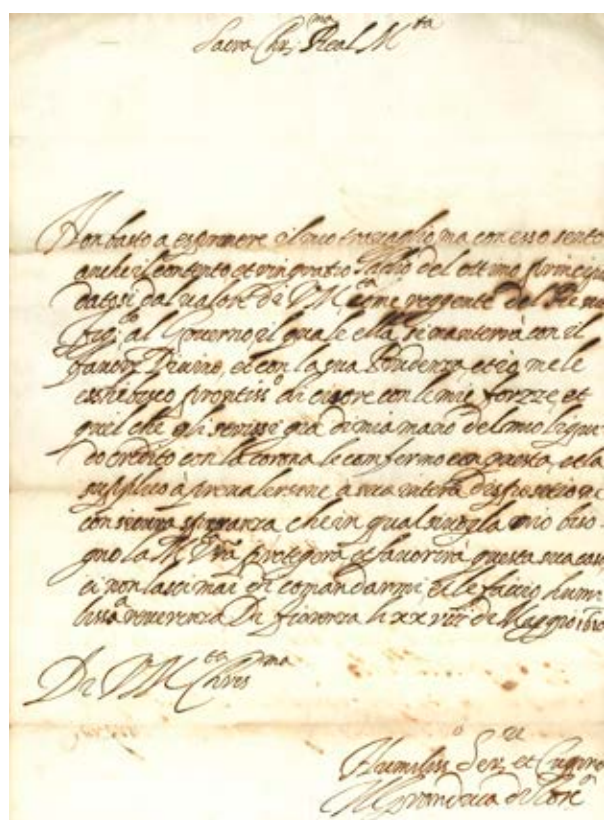 Sacra Chr.ma Real M.ta
Non basto a esprimere il mio travaglio, ma con esso sento
anche il contento et ringratio Iddio del ottimo principio
datosi dal valore di V M come reggente del Re suo
fig.o al Governo, il quale ella si manterrà con il
favor Divino, et con la sua Prudenza, et io me le
esshibisco prontiss.o di cuore con le mie forzze, et
quel che gli scrissi già di mia mano del mio liqui-
do credito con la Corona le confermo con questa, et la
supplico à prevalersene a sua intera dispositione
con sicura speranza che in qual si vogla mio biso-
gno la M. V.ra protegerà et favorirà questa sua casa,
et non lasci mai di comandarmi et le faccio humi-
lissa reverenza Di fiorenza li xx viii di Maggio 1610
Di V M.ta Chris.ma
Humiliss.o Ser.re et Cugino
Il granduca di Tosc.a